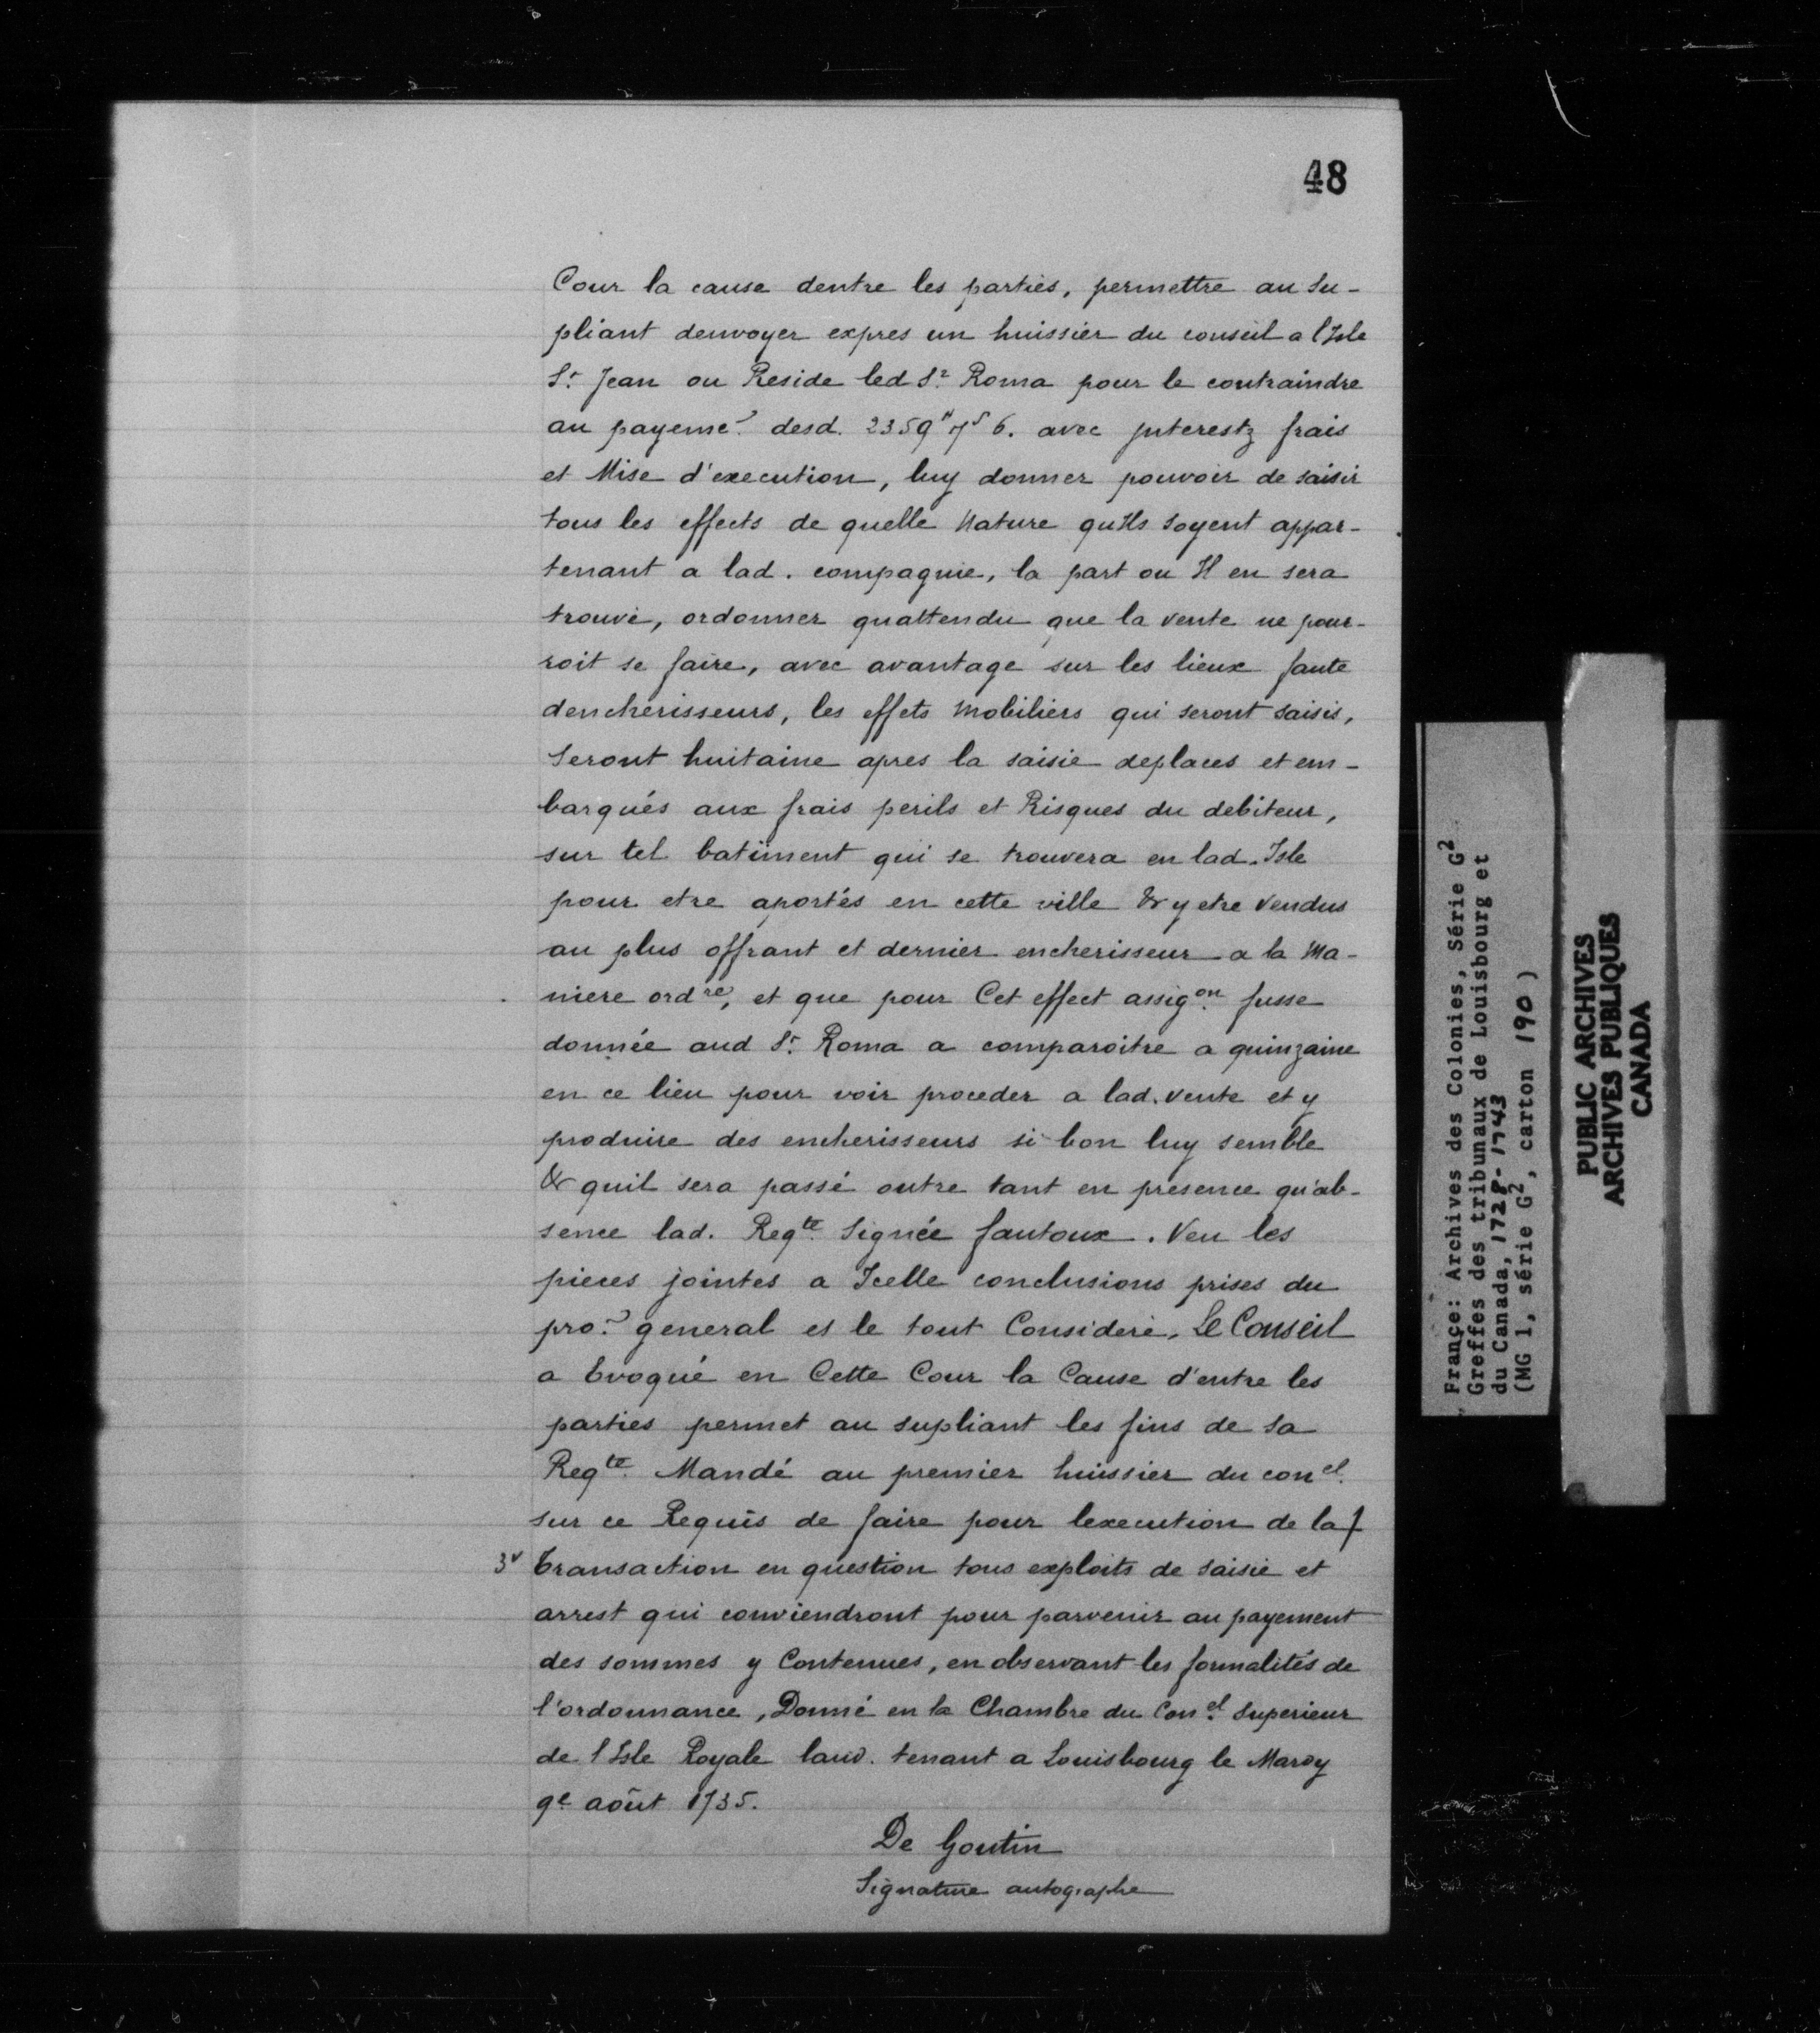 48
Cour la cause dentre les parties, permettre au su-
pliant denvoyer expres un huissier du conseil a l'Isle
St Jean ou Reside led Sr Roma pour le contraindre
au payemt desd. 2359# 7s 6. avec Interestz frais
et Mise d'execution, luy donner pouvoir de saisir
tous les effects de quelle Nature qu'Ils soyent appar-
tenant a lad. compagnie, la part ou Il en sera
trouvé, ordonner quattendu que la vente ne pour-
roit se faire, avec avantage sur les lieux faute
dencherisseurs, les effets Mobiliers qui seront saisis,
Seront huitaine apres la saisie deplacés et em-
barqués aux frais perils et Risques du debiteur,
sur tel batiment qui se trouvera en lad. Isle
pour etre aportés en cette ville & y etre vendus
au plus offrant et dernier encherisseur a la Ma-
niere ordre, et que pour Cet effect assigon fusse
donnée aud Sr Roma a comparoitre a quinzaine
en ce lieu pour voir proceder a lad. vente et y
produire des encherisseurs si bon luy semble
& quil sera passé outre tant en presence qu'ab-
sence lad. Reqte Signée fautoux. Veu les
pieces jointes a Icelle conclusions prises du
pror general et le tout Consideré, Le Conseil
a Evoqué en Cette Cour la Cause d'entre les
parties permet au supliant les fins de sa
Reqte Mandé au premier huissier du conel
sur ce Requis de faire pour lexecution de la
3v transaction en question tous exploits de saisie et
arrest qui conviendront pour parvenir au payement
des sommes y Contenues, en observant les formalités de
l'ordonnance, Donné en la Chambre du Conel Superieur
de l'Isle Royale laud. tenant a Louisbourg le Mardy
9e août 1735.
De Goutin
Signature autographe
France: Archives des Colonies, Série G2
Greffes des tribunaux de Louisbourg et
du Canada, 1728-1743
(MG 1, série G2, carton 190)
PUBLIC ARCHIVES
ARCHIVES PUBLIQUES
CANADA